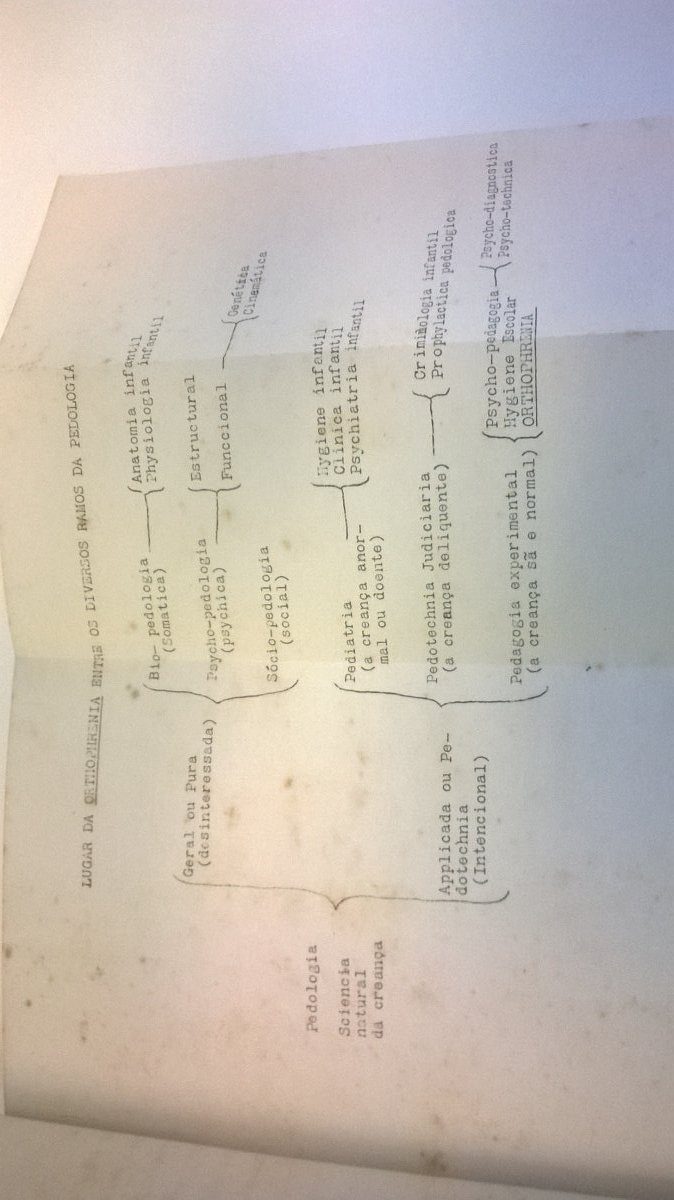 LUGAR DA ORTHOPHRENIA ENTRE OS DIVERSOS RAMOS DA PEDOLOGIA
Pedologia
Sciencia
natural
da creança
Geral ou Pura
(desinteressada)
Bio-pedologia
(Somatica)
Anatomia infantil
Physiologia infantil
Psycho-pedologia
(psychica)
Estructural
Funccional
Genética
Cinemática
Sócio-pedologia
(social)
Applicada ou Pe-
dotechnia
(Intencional)
Pediatria
(a creança anor-
mal ou doente)
Hygiene infantil
Clinica infantil
Psychiatria infantil
Pedotechnia Judiciaria
(a creança deliquente)
Criminologia infantil
Prophylactica pedologica
Pedagogia experimental
(a creança sã e normal)
Psycho-pedagogia
Psycho-diagnostica
Psycho-technica
Hygiene Escolar
ORTHOPHRENIA